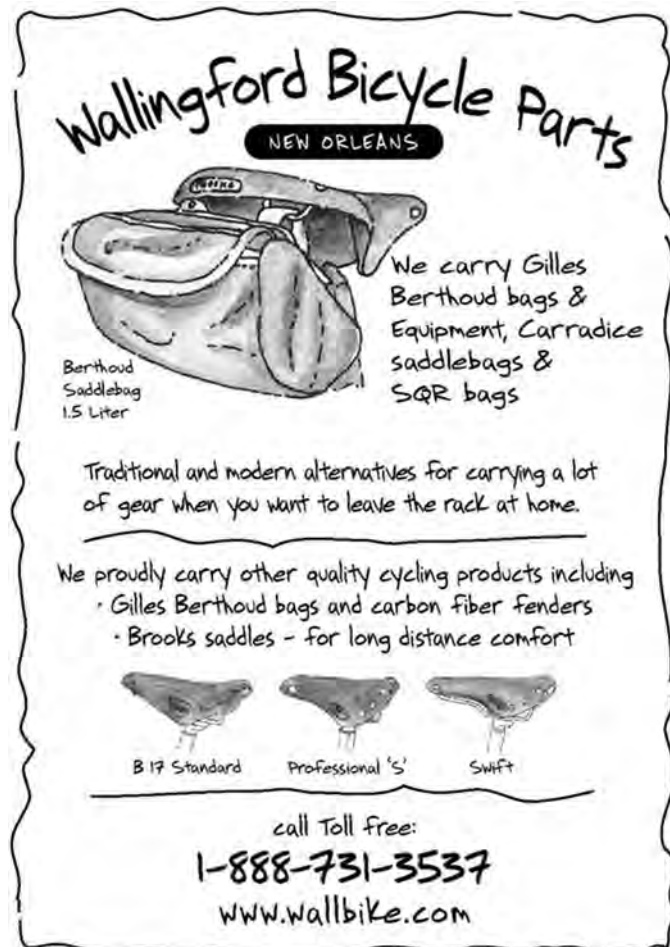 Wallingford Bicycle Parts
NEW ORLEANS
We carry Gilles
Berthoud bags &
Equipment, Carradice
saddlebags &
SQR bags
Berthoud
Saddlebag
1.5 Liter
Traditional and modern alternatives for carrying a lot
of gear when you want to leave the rack at home.
We proudly carry other quality cycling products including
· Gilles Berthoud bags and carbon fiber fenders
· Brooks saddles - for long distance comfort
B 17 Standard
Professional 'S'
Swift
call Toll free:
1-888-731-3537
www.wallbike.com